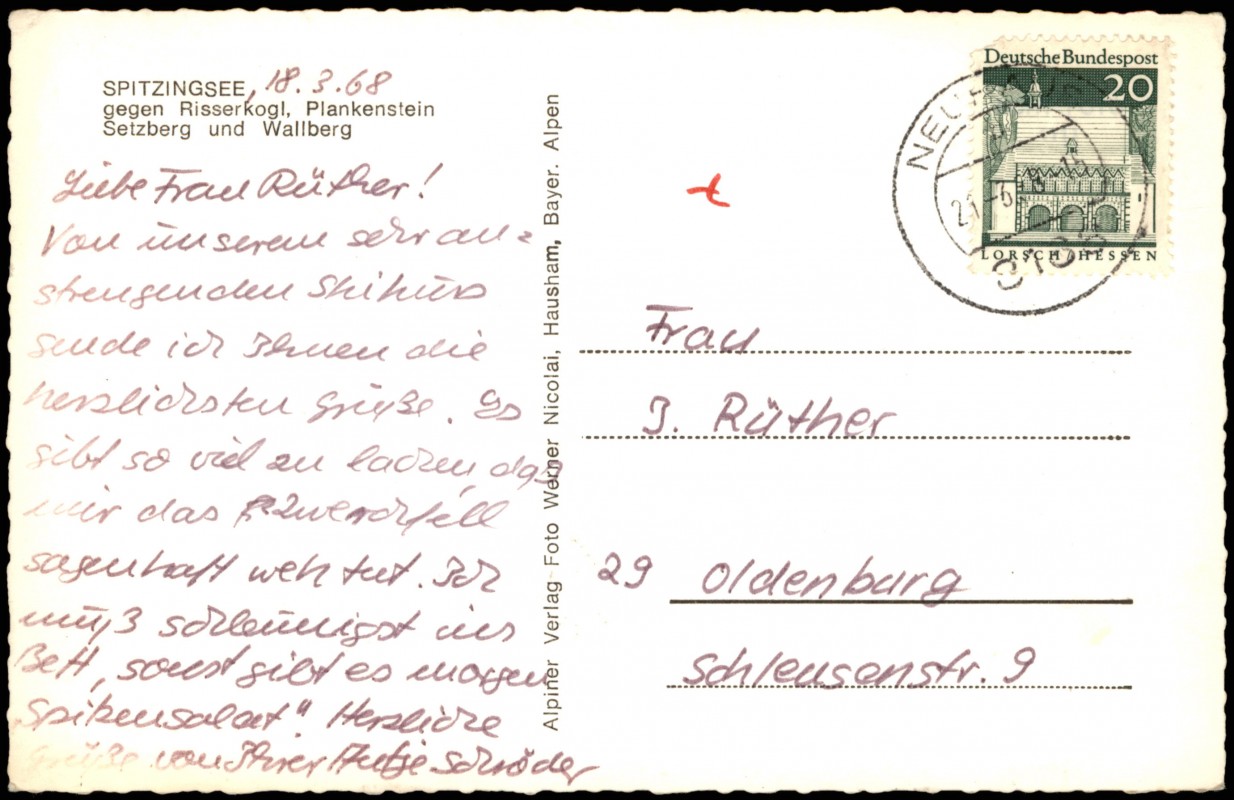 SPITZINGSEE, 18.3.68
gegen Risserkogl, Plankenstein
Setzberg und Wallberg
Liebe Frau Rüther!
Von unserem sehr an=
strengenden Skikurs
sende ich Ihnen die
herzlichsten Grüße. Es
gibt so viel zu lachen, daß
mir das Zwerchfell
sagenhaft weh tut. Ich
muß schleunigst ins
Bett, sonst gibt es morgen
"Spitzensalat". Herzliche
Grüße von Ihrer Antje Schröder
Alpiner Verlag-Foto Werner Nicolai, Hausham, Bayer. Alpen
Deutsche Bundespost
20
LORSCH/HESSEN
Frau
J. Rüther
29 Oldenburg
Schleusenstr. 9